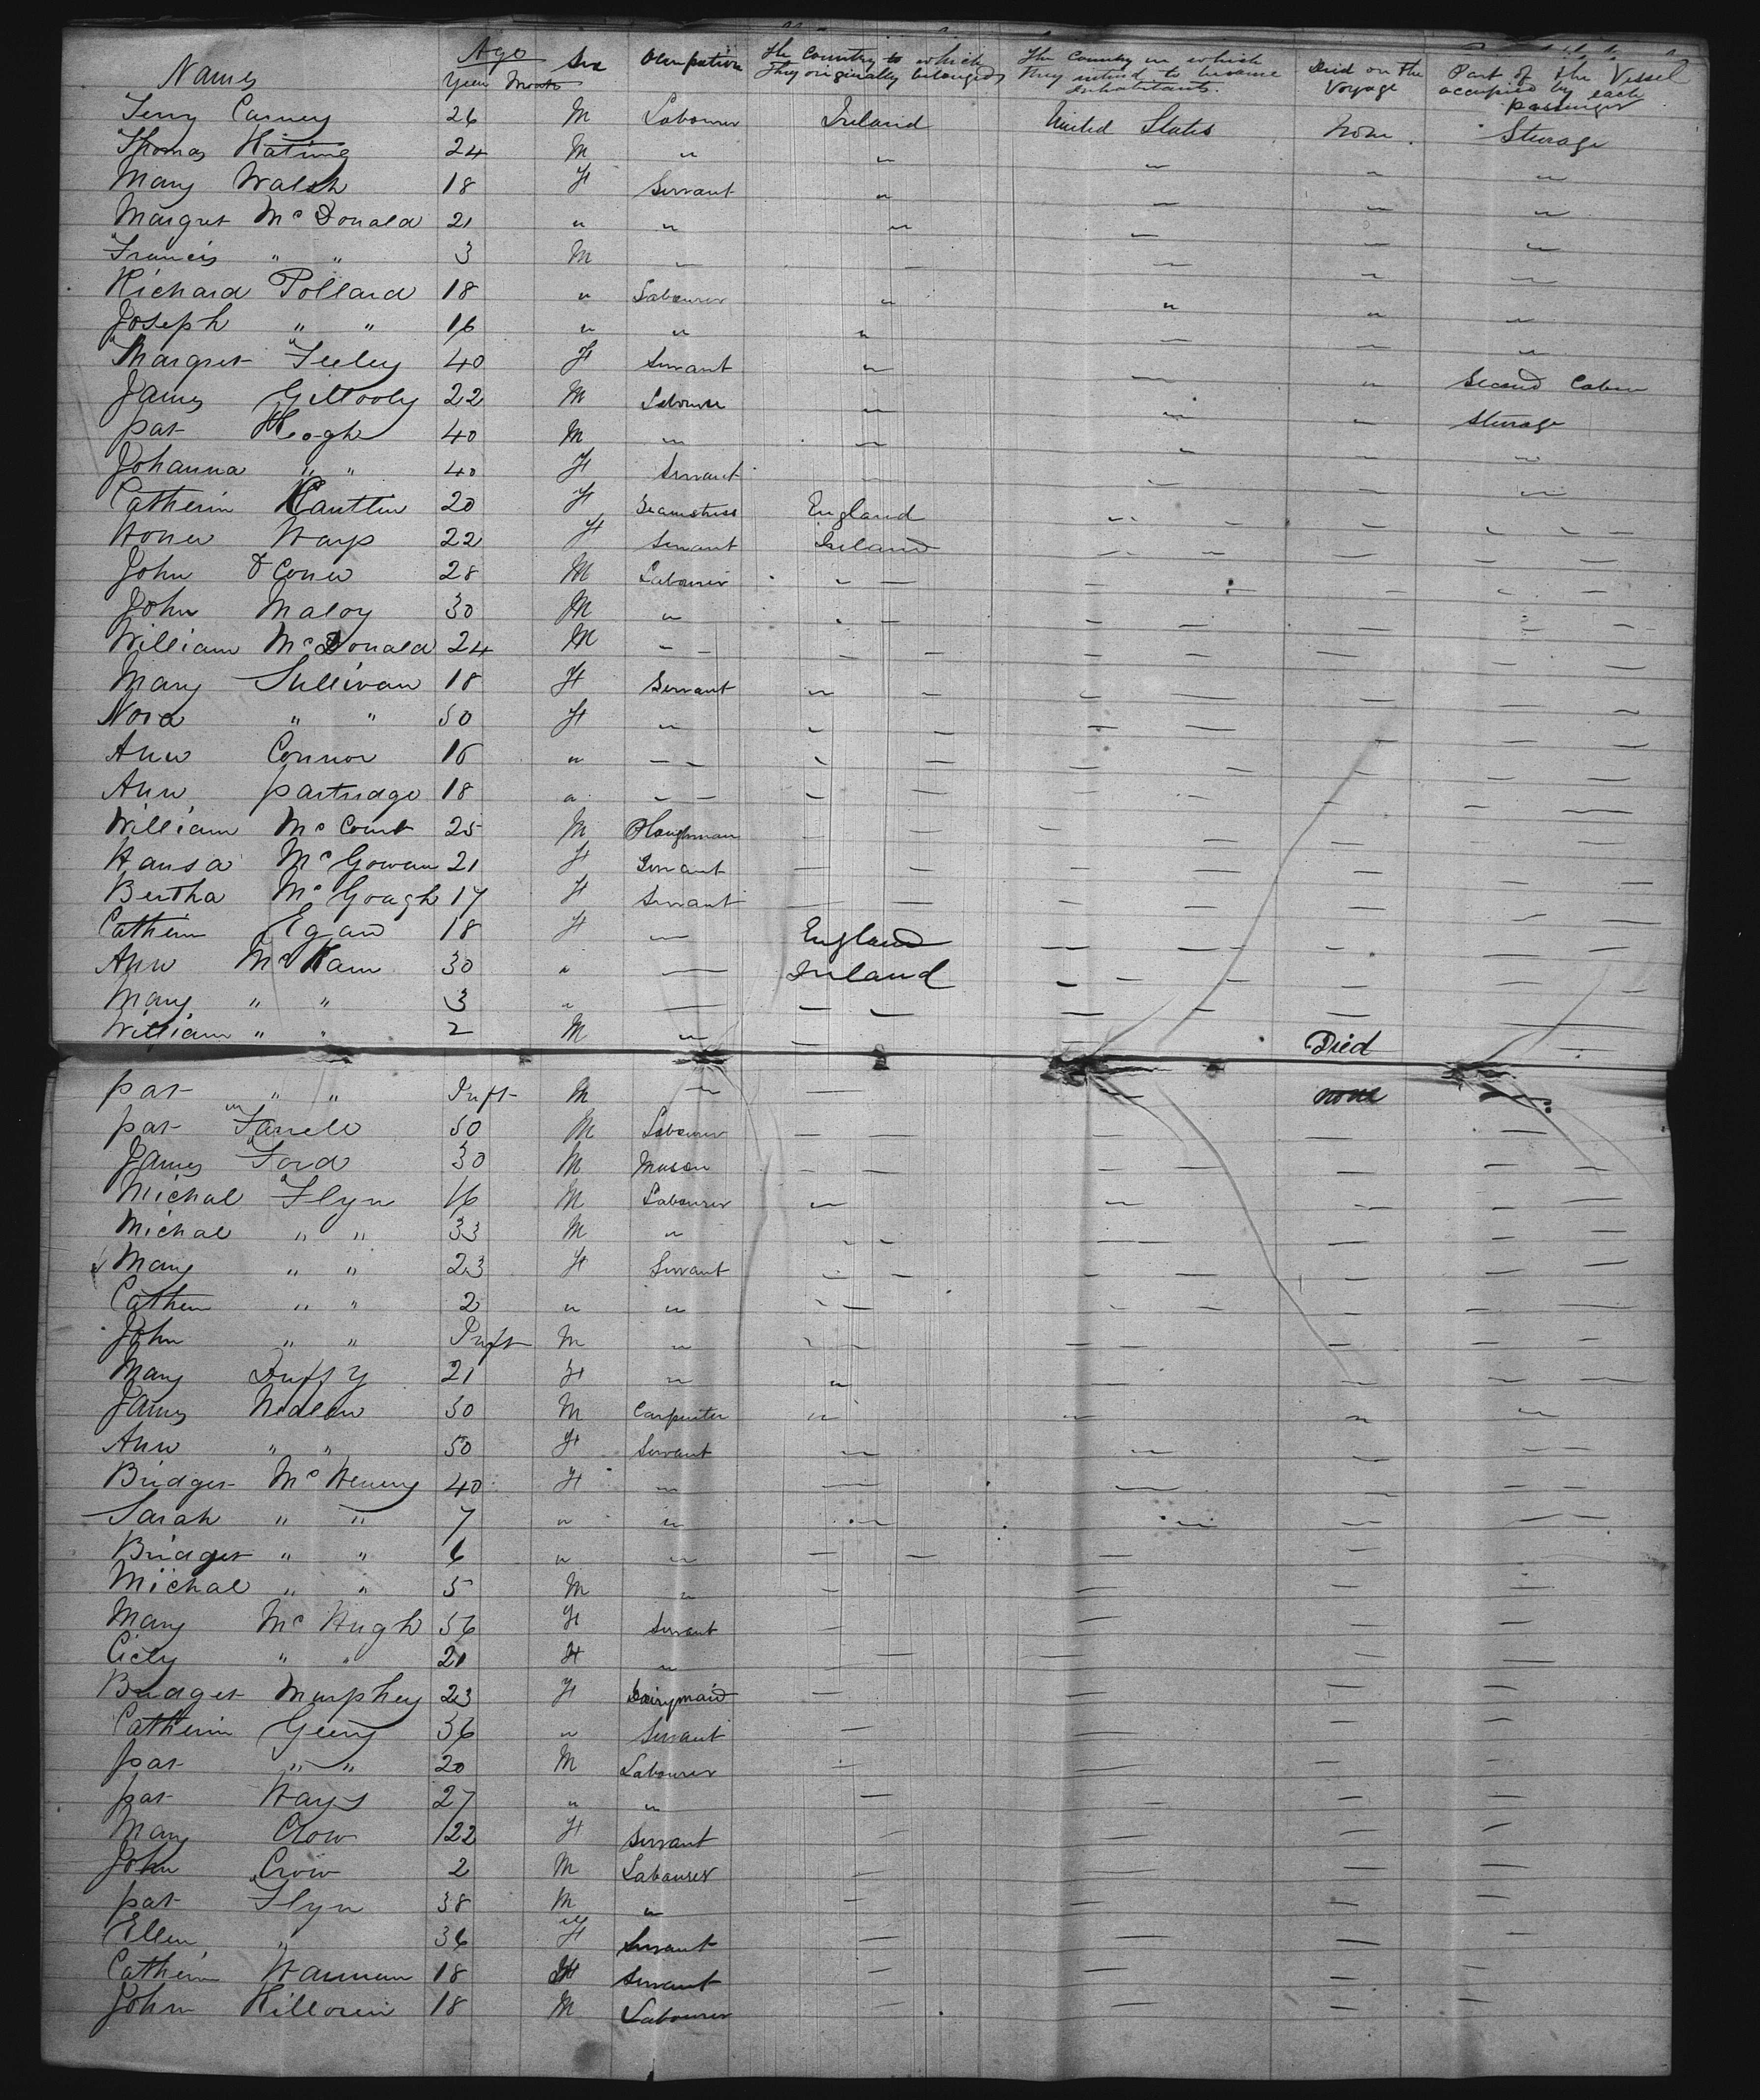 Names Age Year Month Sex Occupation The Country to which They originally belonged The Country in which They intend to become inhabitants. Died on the Voyage Part of the Vessel occupied by each passenger
Terry Carney 26 M Labourer Ireland United States none Sturage
Thomas Kating 24 M " " " " "
Mary Walsh 18 F Servant " " " "
Margret McDonald 21 " " " " " "
Francis " " 3 M " " " " "
Richard Pollard 18 " Labourer " " " "
Joseph " " 16 " " " " " "
Margret Feeley 40 F Servant " " " Second Cabin
James Gillooly 22 M Labourer " " " Sturage
pat Keogh 40 M " " " " "
Johanna " " 40 F Servant " " " "
Catherin Cantlin 20 F Seamstress England " " "
Honer Hays 22 F Servant Ireland " " "
John O Coner 28 M Labourer " " " "
John Maloy 30 M " " " " "
William McDonald 24 M " " " " "
Mary Sullivan 18 F Servant " " " "
Nora " " 50 F " " " " "
Ann Connor 16 " " " " " "
Ann partridge 18 " " " " " "
William McCourt 25 M Ploughman " " " "
Hansa McGowan 21 F Servant " " " "
Bertha McGough 17 F Servant " " " "
Catherin Egan 18 F " England " " "
Ann McKam 30 " " Ireland " " "
Mary " " 3 " " " " " "
William " " 2 M " " " Died "
pat " " Inft M " " " none "
pat Farrell 50 M Labourer " " " "
James Ford 30 M Mason " " " "
Michal Flyn 16 M Labourer " " " "
Michal " " 33 M " " " " "
Mary " " 23 F Servant " " " "
Cathern " " 2 " " " " " "
John " " Inft M " " " " "
Mary Duffy 21 F " " " " "
James Nedlen 50 M Carpenter " " " "
Ann " " 50 F Servant " " " "
Bridget McHenry 40 F " " " " "
Sarah " " 7 " " " " " "
Bridget " " 6 " " " " " "
Michal " " 5 M " " " " "
Mary McHugh 56 F Servant " " " "
Cicly " " 21 F " " " " "
Bridget Murphey 23 F Dairymaid " " " "
Catherin Geery 36 " Servant " " " "
pat " " 20 M Labourer " " " "
pat Hays 27 " " " " " "
Mary Crow 22 F Servant " " " "
John Crow 2 M Labourer " " " "
pat Flyn 38 M " " " " "
Ellen " 36 F Servant " " " "
Catherin Hannan 18 F Servant " " " "
John Killorin 18 M Labourer " " " "